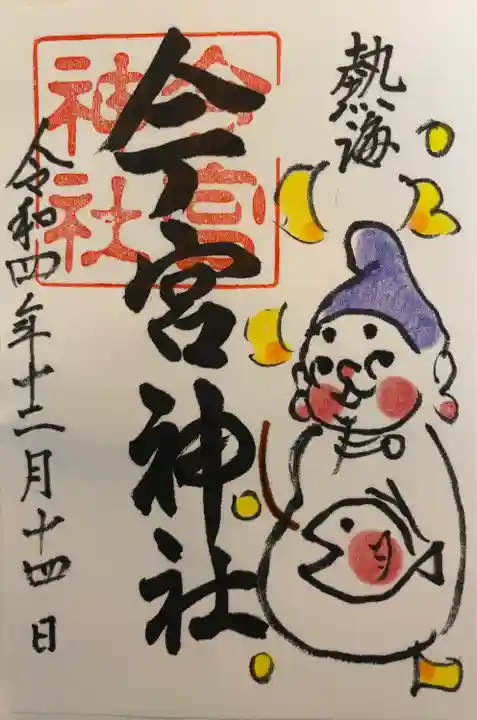 熱海
今宮神社
今宮神社
令和四年十二月十四日